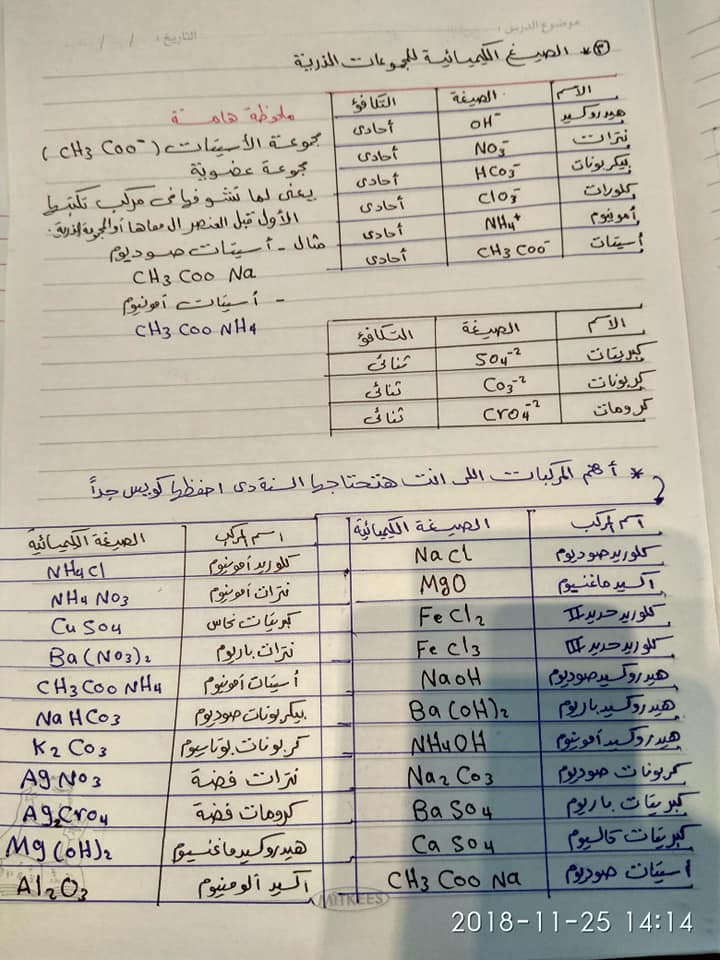 موضوع الدرس :
التاريخ : / /
③* الصيغ الكيميائية للمجموعات الذرية
الاسم الصيغة التكافؤ
هيدروكسيد OH⁻ أحادى
نترات NO₃⁻ أحادى
بيكربونات HCO₃⁻ أحادى
كلورات ClO₃⁻ أحادى
أمونيوم NH₄⁺ أحادى
أسيتات CH₃COO⁻ أحادى
ملحوظة هامة
مجموعة الأسيتات (CH₃COO⁻)
مجموعة عضوية
يعنى لما تشوفها فى مركب تكتبها
الأول قبل العنصر ال معاها أو المجموعة الذرية.
مثال - أسيتات صوديوم
CH₃COONa
- أسيتات أمونيوم
CH₃COONH₄
الاسم الصيغة التكافؤ
كبريتات SO₄⁻² ثنائى
كربونات CO₃⁻² ثنائى
كرومات CrO₄⁻² ثنائى
* أهم المركبات اللى انت هتحتاجها السنة دى احفظها كويس جداً
اسم المركب الصيغة الكيميائية
كلوريد صوديوم NaCl
اكسيد ماغنسيوم MgO
كلوريد حديد II FeCl₂
كلوريد حديد III FeCl₃
هيدروكسيد صوديوم NaOH
هيدروكسيد باريوم Ba(OH)₂
هيدروكسيد أمونيوم NH₄OH
كربونات صوديوم Na₂CO₃
كبريتات باريوم BaSO₄
كبريتات كالسيوم CaSO₄
أسيتات صوديوم CH₃COONa
اسم المركب الصيغة الكيميائية
كلوريد أمونيوم NH₄Cl
نترات أمونيوم NH₄NO₃
كبريتات نحاس CuSO₄
نترات باريوم Ba(NO₃)₂
أسيتات أمونيوم CH₃COONH₄
بيكربونات صوديوم NaHCO₃
كربونات بوتاسيوم K₂CO₃
نترات فضة AgNO₃
كرومات فضة Ag₂CrO₄
هيدروكسيد ماغنسيوم Mg(OH)₂
اكسيد ألومنيوم Al₂O₃
MITKEES
2018-11-25 14:14